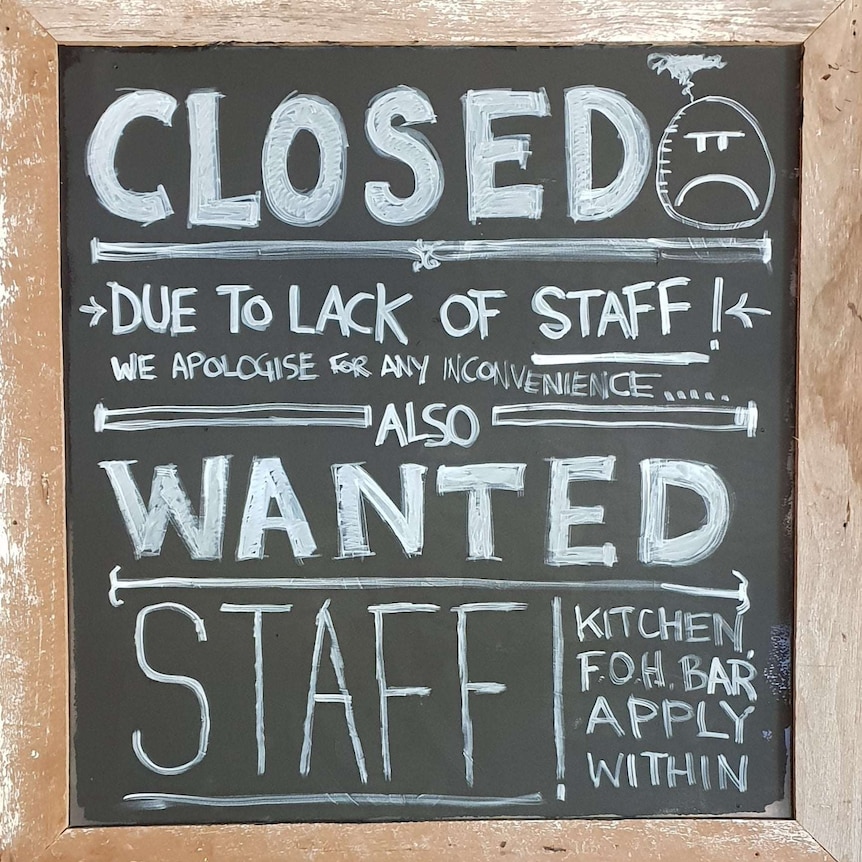 CLOSED
→DUE TO LACK OF STAFF!←
WE APOLOGISE FOR ANY INCONVENIENCE.....
ALSO
WANTED
STAFF
KITCHEN,
F.O.H. BAR
APPLY
WITHIN